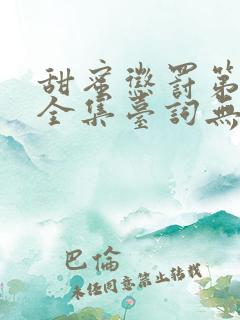 甜蜜懲罰第
全集臺詞無
巴倫
未任同意禁止轉載